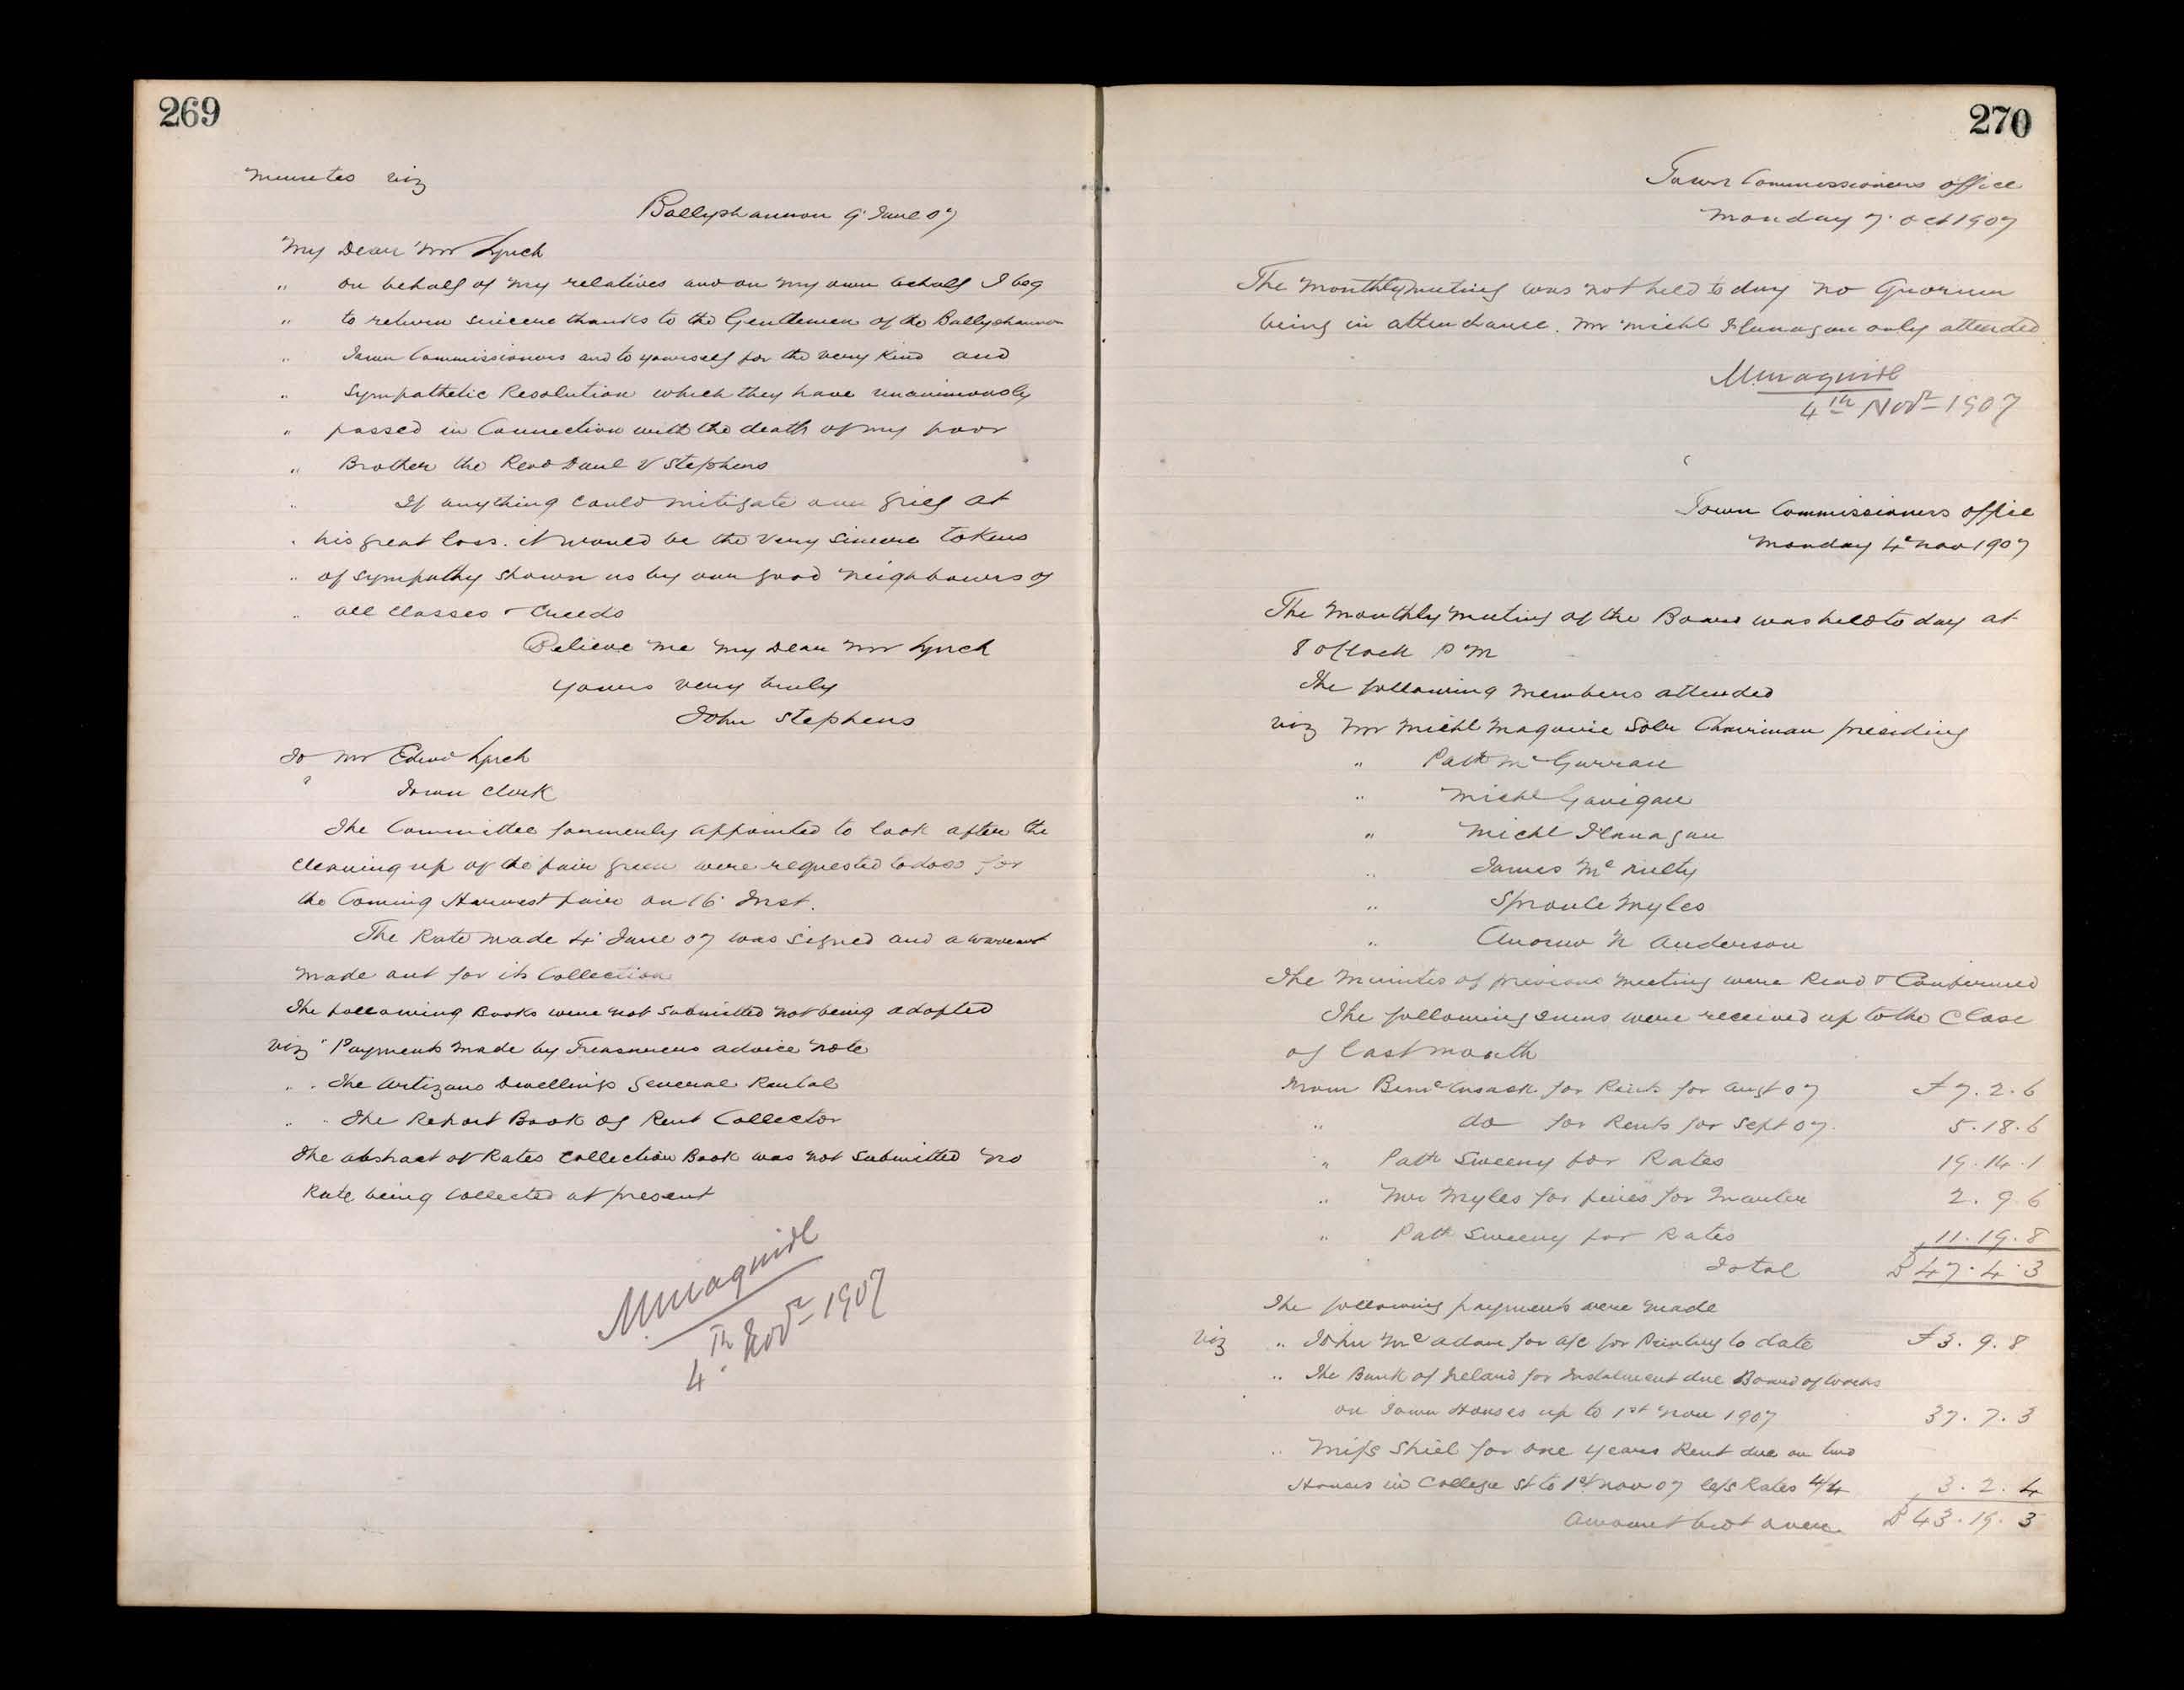 269
Minutes viz
Ballyshannon 9' June 07
My Dear Mr Lynch
" on behalf of my relatives and on my own behalf I beg
" to return sincere thanks to the Gentlemen of the Ballyshannon
" Town Commissioners and to yourself for the very Kind and
" Sympathetic Resolution which they have unanimously
" passed in Connection with the death of my poor
" Brother the Revd Danl V Stephens
" If anything could mitigate our grief at
" his great loss. it would be the very Sincere tokens
" of sympathy shown us by our good neighbours of
" all classes & Creeds
Believe me my Dear Mr Lynch
yours very truly
John Stephens
To Mr Edwd Lynch
" Town Clerk
The Committee formerly appointed to look after the
cleaning up of the fair green were requested to do so for
the Coming Harvest fair on 16' Inst.
The Rate made 4' June 07 was signed and a warrant
made out for its Collection
The following Books were not submitted not being adopted
viz " Payments made by Treasurers advice note
" " The Artizans Dwellings General Rental
" " The Report Book of Rent Collector
The abstract of Rates Collection Book was not submitted no
Rate being Collected at present
MMaguire
4th Novr 1907
270
Town Commissioners office
Monday 7' Oct 1907
The monthly meeting was not held to day no Quorum
being in attendance. Mr Michl Flanagan only attended
MMaguire
4th Novr 1907
Town Commissioners office
Monday 4' Nov 1907
The Monthly Meeting of the Board was held to day at
8 oClock P M
The following Members attended
viz Mr Michl Maguire Solr Chairman presiding
" Patk McGurran
" Michl Gavigan
" Michl Flanagan
" James McNulty
" Sproule Myles
" Andrew N Anderson
The Minutes of previous meeting were Read & Confirmed
The following sums were received up to the Close
of last month
From Bernd Cusack for Rents for Augt 07 £7.2.6
" do for Rents for Sept 07. 5.18.6
" Patk Sweeny for Rates 19.14.1
" Mr Myles for fines for 2.9.6
" Patk Sweeny for Rates 11.19.8
Total £47.4.3
The following payments were made
viz " John McAdam for a/c for Printing to date £3.9.8
" The Bank of Ireland for Instalment due Board of Works
on Town Houses up to 1st Nov 1907 37.7.3
" Miss Shiel for one years Rent due on two
Houses in College St to 1st Nov 07 less Rates 4/4 3.2.4
Amount brot over £43.19.3